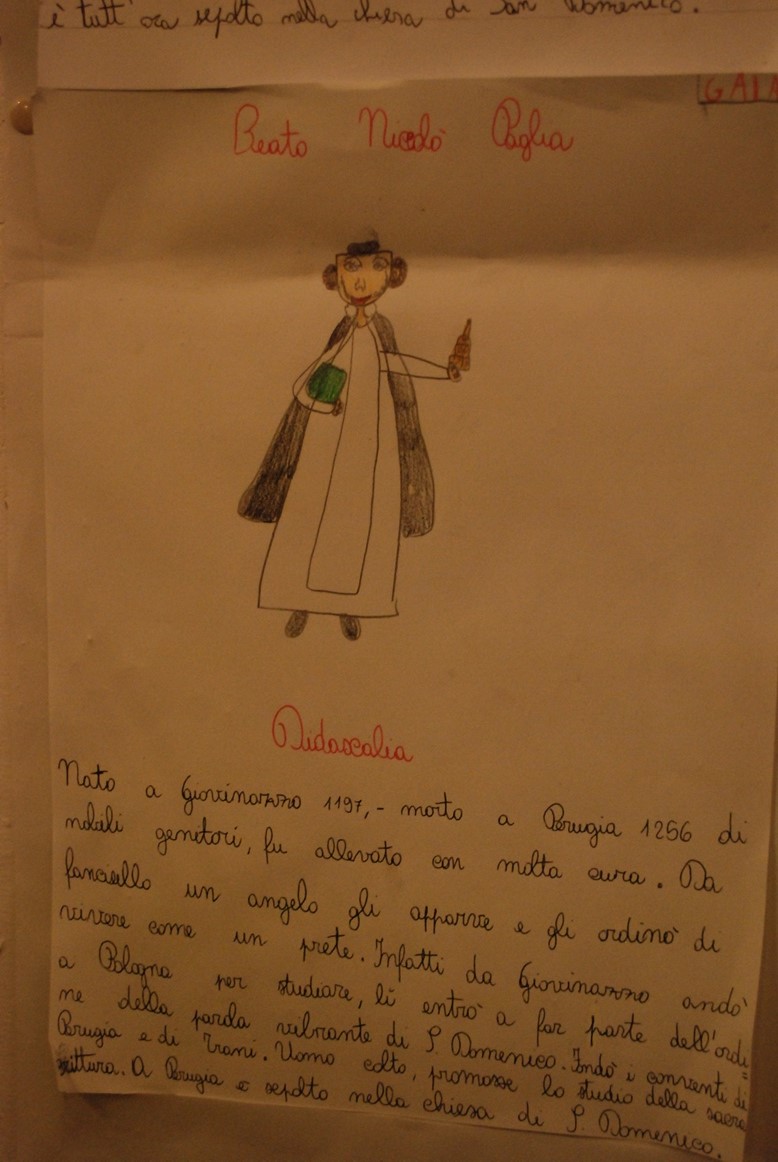 è tutt'ora sepolto nella chiesa di San Domenico.
GAIA
Beato Nicolò Paglia
Didascalia
Nato a Giovinazzo 1197,- morto a Perugia 1256 di
nobili genitori, fu allevato con molta cura. Da
fanciullo un angelo gli apparve e gli ordinò di
vivere come un prete. Infatti da Giovinazzo andò
a Bologna per studiare, lì entrò a far parte dell'ordi=
ne della parola vibrante di S. Domenico. Fondò i conventi di
Perugia e di Trani. Uomo colto, promosse lo studio della sacra
scrittura. A Perugia è sepolto nella chiesa di S. Domenico.